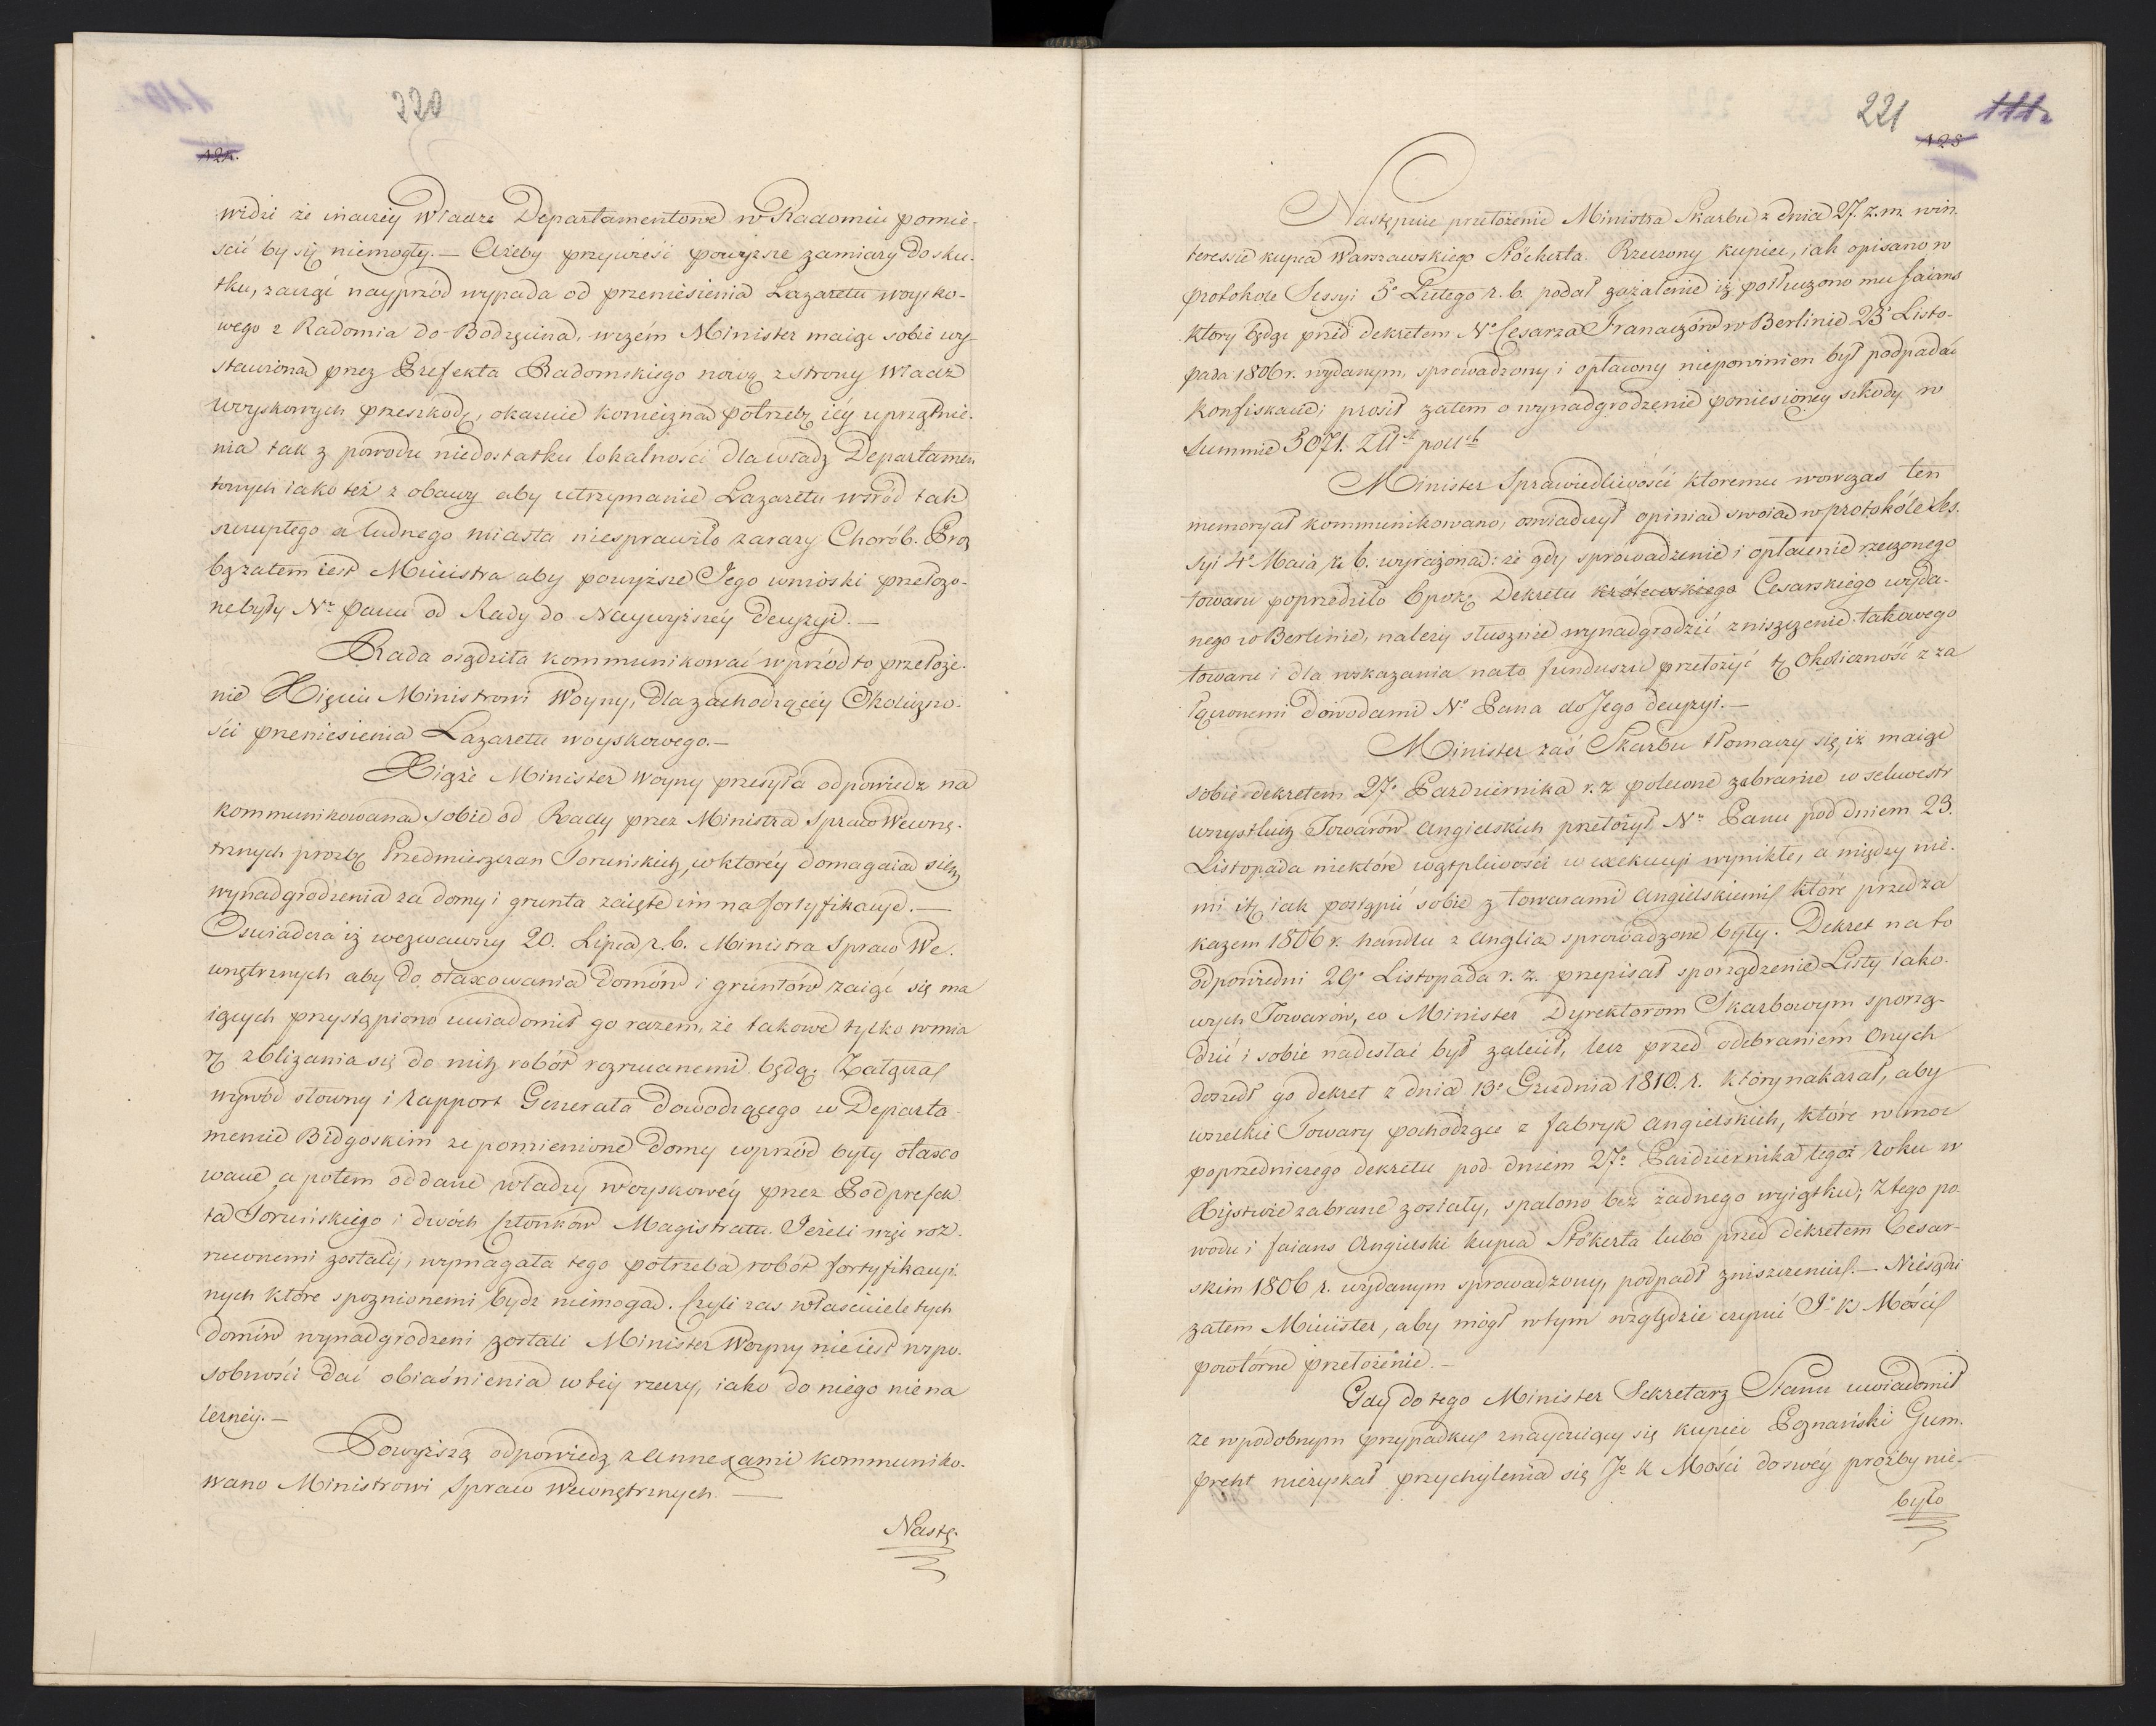 220
124.
widzi że inaczéy Władze Departamentowe w Radomiu pomie-
ścić by się niemogły. — Ażeby przywieść powyższe zamiary do sku-
tku, zacząć nayprzód wypada od przeniesienia Lazaretu woysko-
wego z Radomia do Bodzęcina, wczém Minister maiąc sobie wy-
stawioną przez Prefekta Radomskiego nową z strony Władz
woyskowych przeszkodę, okazuie konieczną potrzebę iéy uprzątnie-
nia tak z powodu niedostatku lokalności dla władz Departamen
towych iako też z obawy aby utrzymanie Lazaretu wśród tak
szczupłego a ludnego miasta niesprawiło zarazy Chorób. Proź
bą zatem iest Ministra aby powyższe Jego wnioski przełożo-
ne były Nu Panu od Rady do Naywyższéy Decyzyi. —
Rada osądziła kommunikować wprzód to przełoże-
nie Xięciu Ministrowi Woyny, dla zachodzącéy Okoliczno-
ści przeniesienia Lazaretu woyskowego. —
Xiąże Minister Woyny przesyła odpowiedz na
kommunikowaną sobie od Rady przez Ministra Spraw Wewnę-
trznych prozbę Przedmieszczan Toruńskich, w któréy domagaią się
wynadgrodzenia za domy i grunta zaięte im na fortyfikacye. —
Oswiadcza iż wezwawszy 20. Lipca r. b. Ministra Spraw We-
wnętrznych aby do otaxowania Domów i gruntów zaiąć się ma
iących przystąpiono uwiadomił go razem, że takowe tylko w mia
rę zbliżania się do nich robót rozrzucanemi będą. Załącza
wywód słowny i rapport Generała dowodzącego w Departa-
mencie Bidgoskim ze pomienione Domy wprzód były otaxo
wane a potem oddane władzy woyskowéy przez Podprefek
ta Toruńskiego i dwóch Członków Magistratu. Jeżeli więc roz-
rzuconemi zostały, wymagała tego potrzeba robót fortyfikacyi
nych które spoznionemi bydz niemogą. Czyli zas właściciele tych
domów wynadgrodzeni zostali Minister Woyny nie iest w spo-
sobności dać obiaśnienia w téy rzeczy, iako do niego nie na
leżnéy. —
Powyższą odpowiedz z Annexami kommuniko-
wano Ministrowi Spraw Wewnętrznych. —
Nastę-
221
111
125
Następuie przełożenie Ministra Skarbu z dnia 27. z. m. w in-
teressie kupca Warszawskiego Stöckerta. Rzeczony kupiec, iak opisano w
protokole Sessyi 5o Lutego r. b. podał zażalenie iż potłuczono mu faians
który będąc przed dekretem No Cesarza Francuzów w Berlinie 23 Listo-
pada 1806 r. wydanym, sprowadzony i opłacony niepowinien był podpadać
konfiskacie; prosił zatem o wynadgrodzenie poniesionéy szkody w
Summie 5071. Złt polch
Minister Sprawiedliwości któremu wowczas ten
memoryał kommunikowano, oswiadczył opinią swoią w protokóle Ses-
syi 4o Maia r. b. wyrażoną: że gdy sprowadzenie i opłacenie rzeczonego
towaru poprzedziło Epokę Dekretu królewskiego Cesarskiego wyda-
nego w Berlinie, należy słusznie wynadgrodzić zniszczenie takowego
towaru i dla wskazania na to funduszu przełożyć tę Okoliczność z za
łączonemi dowodami No Pana do Jego decyzyi. —
Minister zaś Skarbu tłomaczy się, iż maiąc
sobie dekretem 27o Pazdziernika r. z. polecone zabranie w sekwestr
wszystkich Towarów Angielskich przełożył Nu Panu pod dniem 23.
Listopada niektóre wątpliwości w exekucyi wynikłe, a między nie-
mi itę iak postąpić sobie z towarami Angielskiemi które przed za
kazem 1806 r. handlu z Anglią sprowadzone były. Dekret na to
odpowiedni 29o Listopada r. z. przepisał sporządzenie Listy iako-
wych Towarów, co Minister Dyrektorom Skarbowym sporzą-
dzić i sobie nadesłać był zalecił, lecz przed odebraniem Onych
doszedł go dekret z dnia 13o Grudnia 1810. r. który nakazał, aby
wszelkie Towary pochodzące z fabryk Angielskich, które w moc
poprzedniczego dekretu pod dniem 27o Pazdziernika tegoż roku w
Xięstwie zabrane zostały, spalono bez żadnego wyiątku; Ztego po-
wodu i faians Angielski kupca Stökerta lubo przed dekretem Cesar-
skim 1806 r. wydanym sprowadzony, podpadł zniszczeniu. — Niesądzi
zatem Minister, aby mógł w tym względzie czynić Jo K Mości
powtórne przełożenie. —
Gdy do tego Minister Sekretarz Stanu uwiadomił
ze w podobnym przypadku znayduiący się kupiec Poznański Gum-
precht niezyskał przychylenia się Jo K Mości do swéy prożby nie-
było